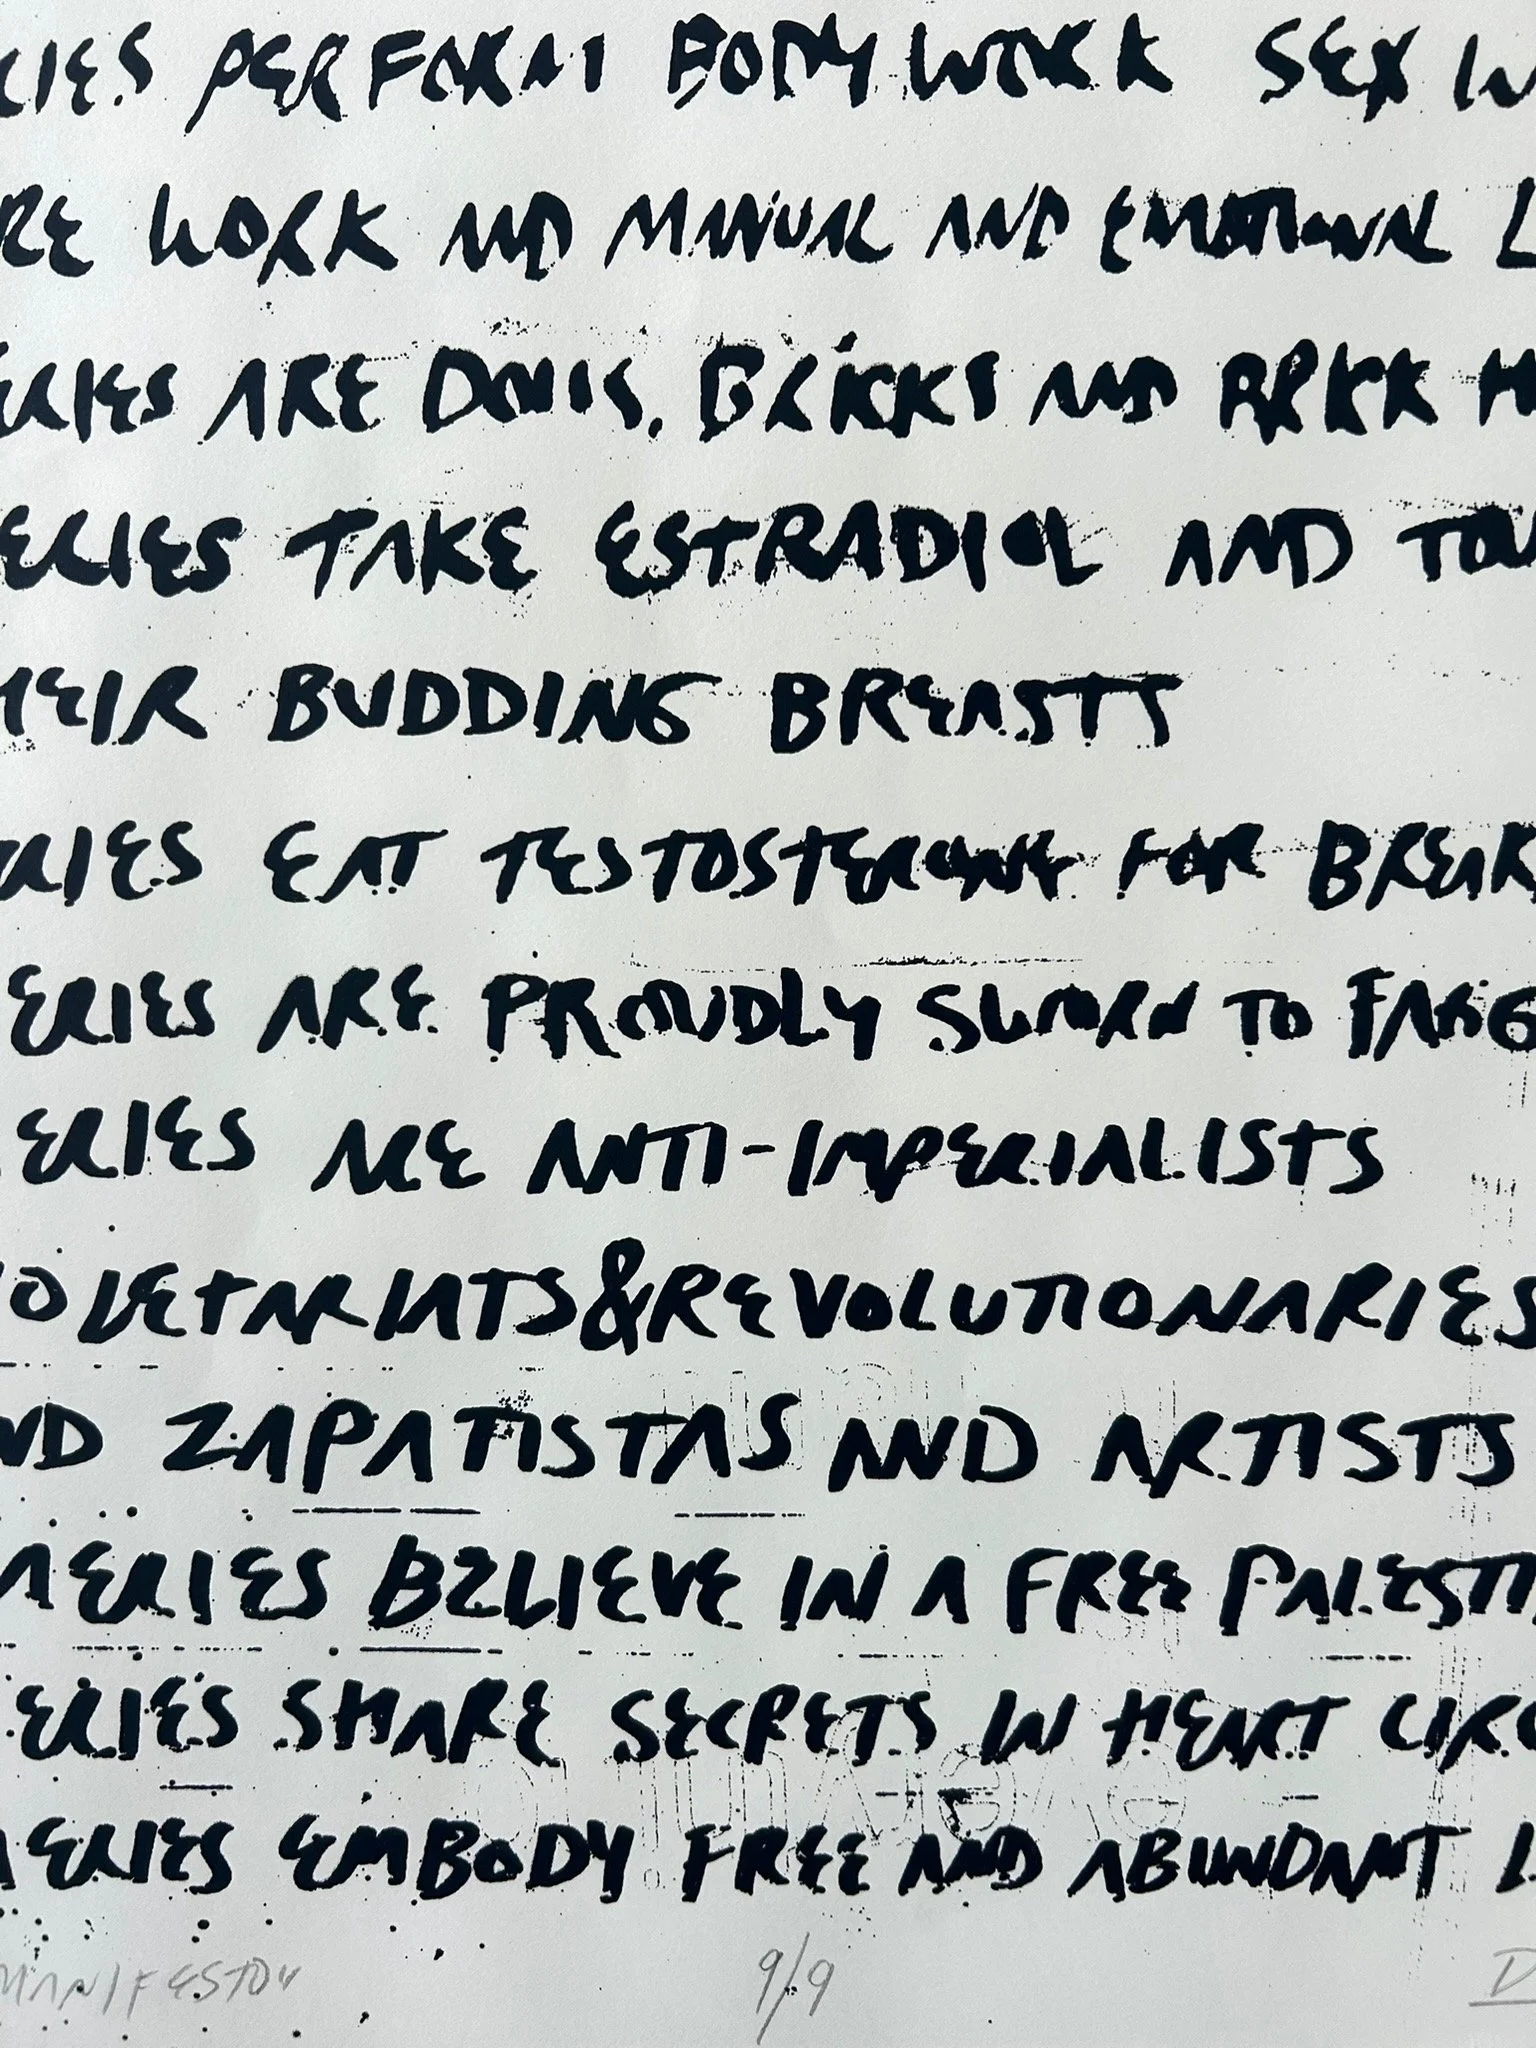 RIES PERFORM BODY WORK SEX W
RE WORK AND MANUAL AND EMOTIONAL L
ERIES ARE DOMS, BRICKS AND BRICK H
ERIES TAKE ESTRADIOL AND TOU
HEIR BUDDING BREASTS
ERIES EAT TESTOSTERONE FOR BREAK
ERIES ARE PROUDLY SWORN TO FAGG
ERIES ARE ANTI-IMPERIALISTS
OLETARIATS & REVOLUTIONARIES
ND ZAPATISTAS AND ARTISTS
AERIES BELIEVE IN A FREE PALESTI
ERIES SHARE SECRETS IN HEART CIRC
AERIES EMBODY FREE AND ABUNDANT L
MANIFESTO" 9/9 D